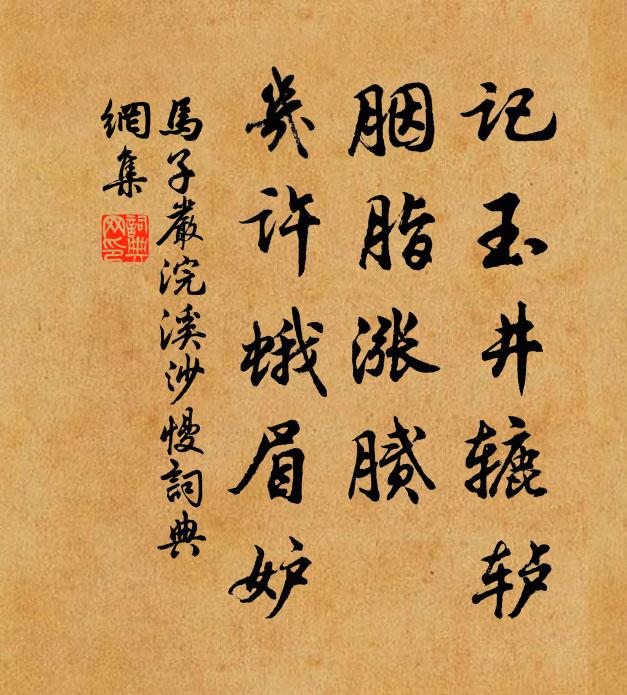 记玉井辘轳
胭脂涨腻
幾许蛾眉妒
馬子嚴浣溪沙慢詞典
網集
詞典网印